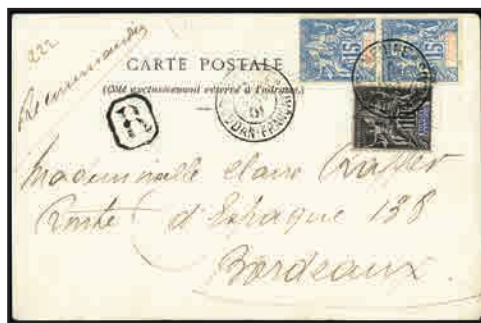 222
Recommandée
CARTE POSTALE
(Côté exclusivement réservé à l'adresse)
R
15
15
SOUDAN FRANÇAIS
Mademoiselle Claire
Route d'Espagne 138
Bordeaux.